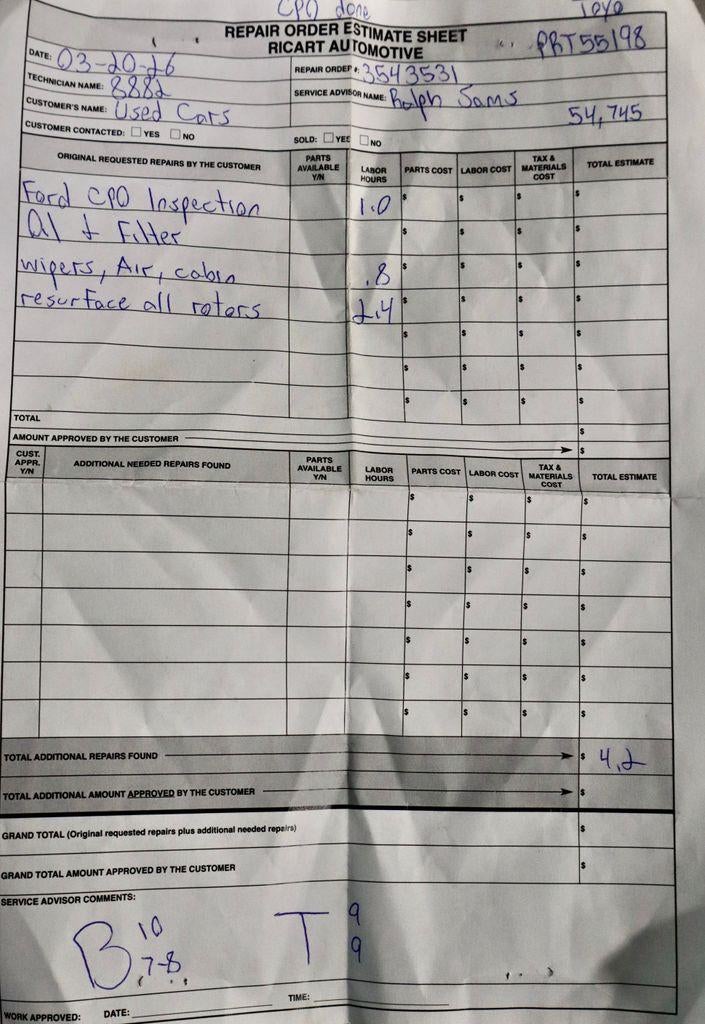 CPO done
Toyo
REPAIR ORDER ESTIMATE SHEET
RICART AUTOMOTIVE
PRT55198
DATE: 03-20-26
REPAIR ORDER #: 3543531
TECHNICIAN NAME: 8882
SERVICE ADVISOR NAME: Ralph Sams
CUSTOMER'S NAME: Used Cars
54,745
CUSTOMER CONTACTED: ☐ YES ☐ NO
SOLD: ☐ YES ☐ NO
ORIGINAL REQUESTED REPAIRS BY THE CUSTOMER PARTS AVAILABLE Y/N LABOR HOURS PARTS COST LABOR COST TAX & MATERIALS COST TOTAL ESTIMATE
Ford CPO Inspection 1.0 $ $ $ $
Oil & Filter $ $ $ $
wipers, Air, cabin .8 $ $ $ $
resurface all rotors 2.4 $ $ $ $
$ $ $ $
$ $ $ $
$ $ $ $
TOTAL $
AMOUNT APPROVED BY THE CUSTOMER $
CUST. APPR. Y/N ADDITIONAL NEEDED REPAIRS FOUND PARTS AVAILABLE Y/N LABOR HOURS PARTS COST LABOR COST TAX & MATERIALS COST TOTAL ESTIMATE
$ $ $ $
$ $ $ $
$ $ $ $
$ $ $ $
$ $ $ $
$ $ $ $
$ $ $ $
TOTAL ADDITIONAL REPAIRS FOUND $ 4.2
TOTAL ADDITIONAL AMOUNT APPROVED BY THE CUSTOMER $
GRAND TOTAL (Original requested repairs plus additional needed repairs) $
GRAND TOTAL AMOUNT APPROVED BY THE CUSTOMER $
SERVICE ADVISOR COMMENTS:
B 10 T 9
7-8 9
WORK APPROVED: DATE: TIME: